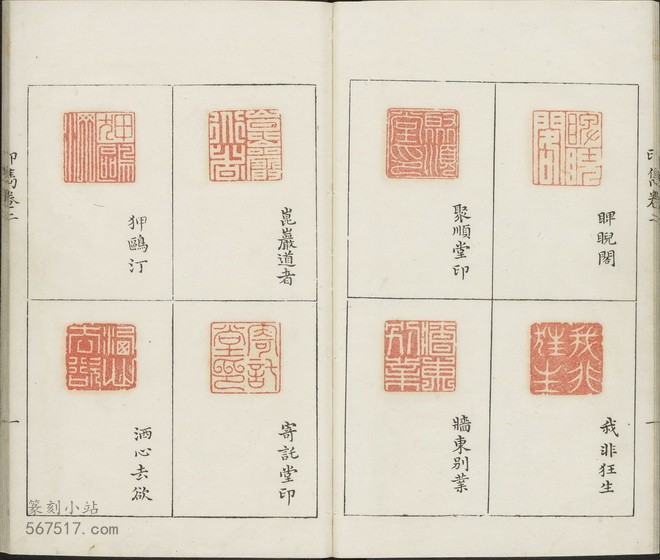 印雋卷二
一
睥睨閣
聚順堂印
我非狂生
牆東別業
崑巖道者
狎鷗汀
寄託堂印
洒心去欲
印雋卷二
一
篆刻小站
567517.com